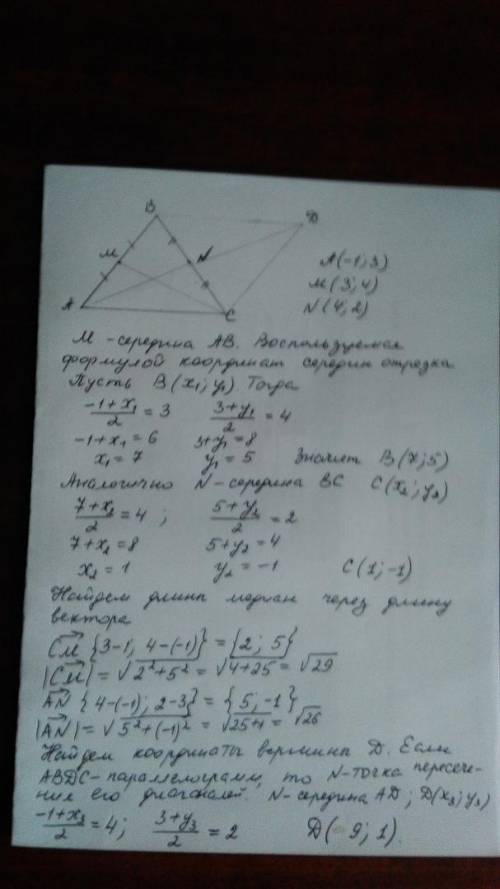 B
D
M
N
A
C
A(-1; 3)
M(3; 4)
N(4; 2)
M - середина AB. Воспользуемся
формулой координат середин отрезка
Пусть B(x₁; y₁) Тогда
(-1+x₁)/2 = 3   (3+y₁)/2 = 4
-1+x₁ = 6   3+y₁ = 8
x₁ = 7   y₁ = 5   Значит B(7; 5)
Аналогично N - середина BC   C(x₂; y₂)
(7+x₂)/2 = 4 ;   (5+y₂)/2 = 2
7+x₂ = 8   5+y₂ = 4
x₂ = 1   y₂ = -1   C(1; -1)
Найдем длины медиан через длину
вектора
CM {3-1; 4-(-1)} = {2; 5}
|CM| = √2²+5² = √4+25 = √29
AN {4-(-1); 2-3} = {5; -1}
|AN| = √5²+(-1)² = √25+1 = √26
Найдем координаты вершины D. Если
ABDC - параллелограмм, то N - точка пересече-
ния его диагоналей. N - середина AD; D(x₃; y₃)
(-1+x₃)/2 = 4;   (3+y₃)/2 = 2   D( 9; 1).